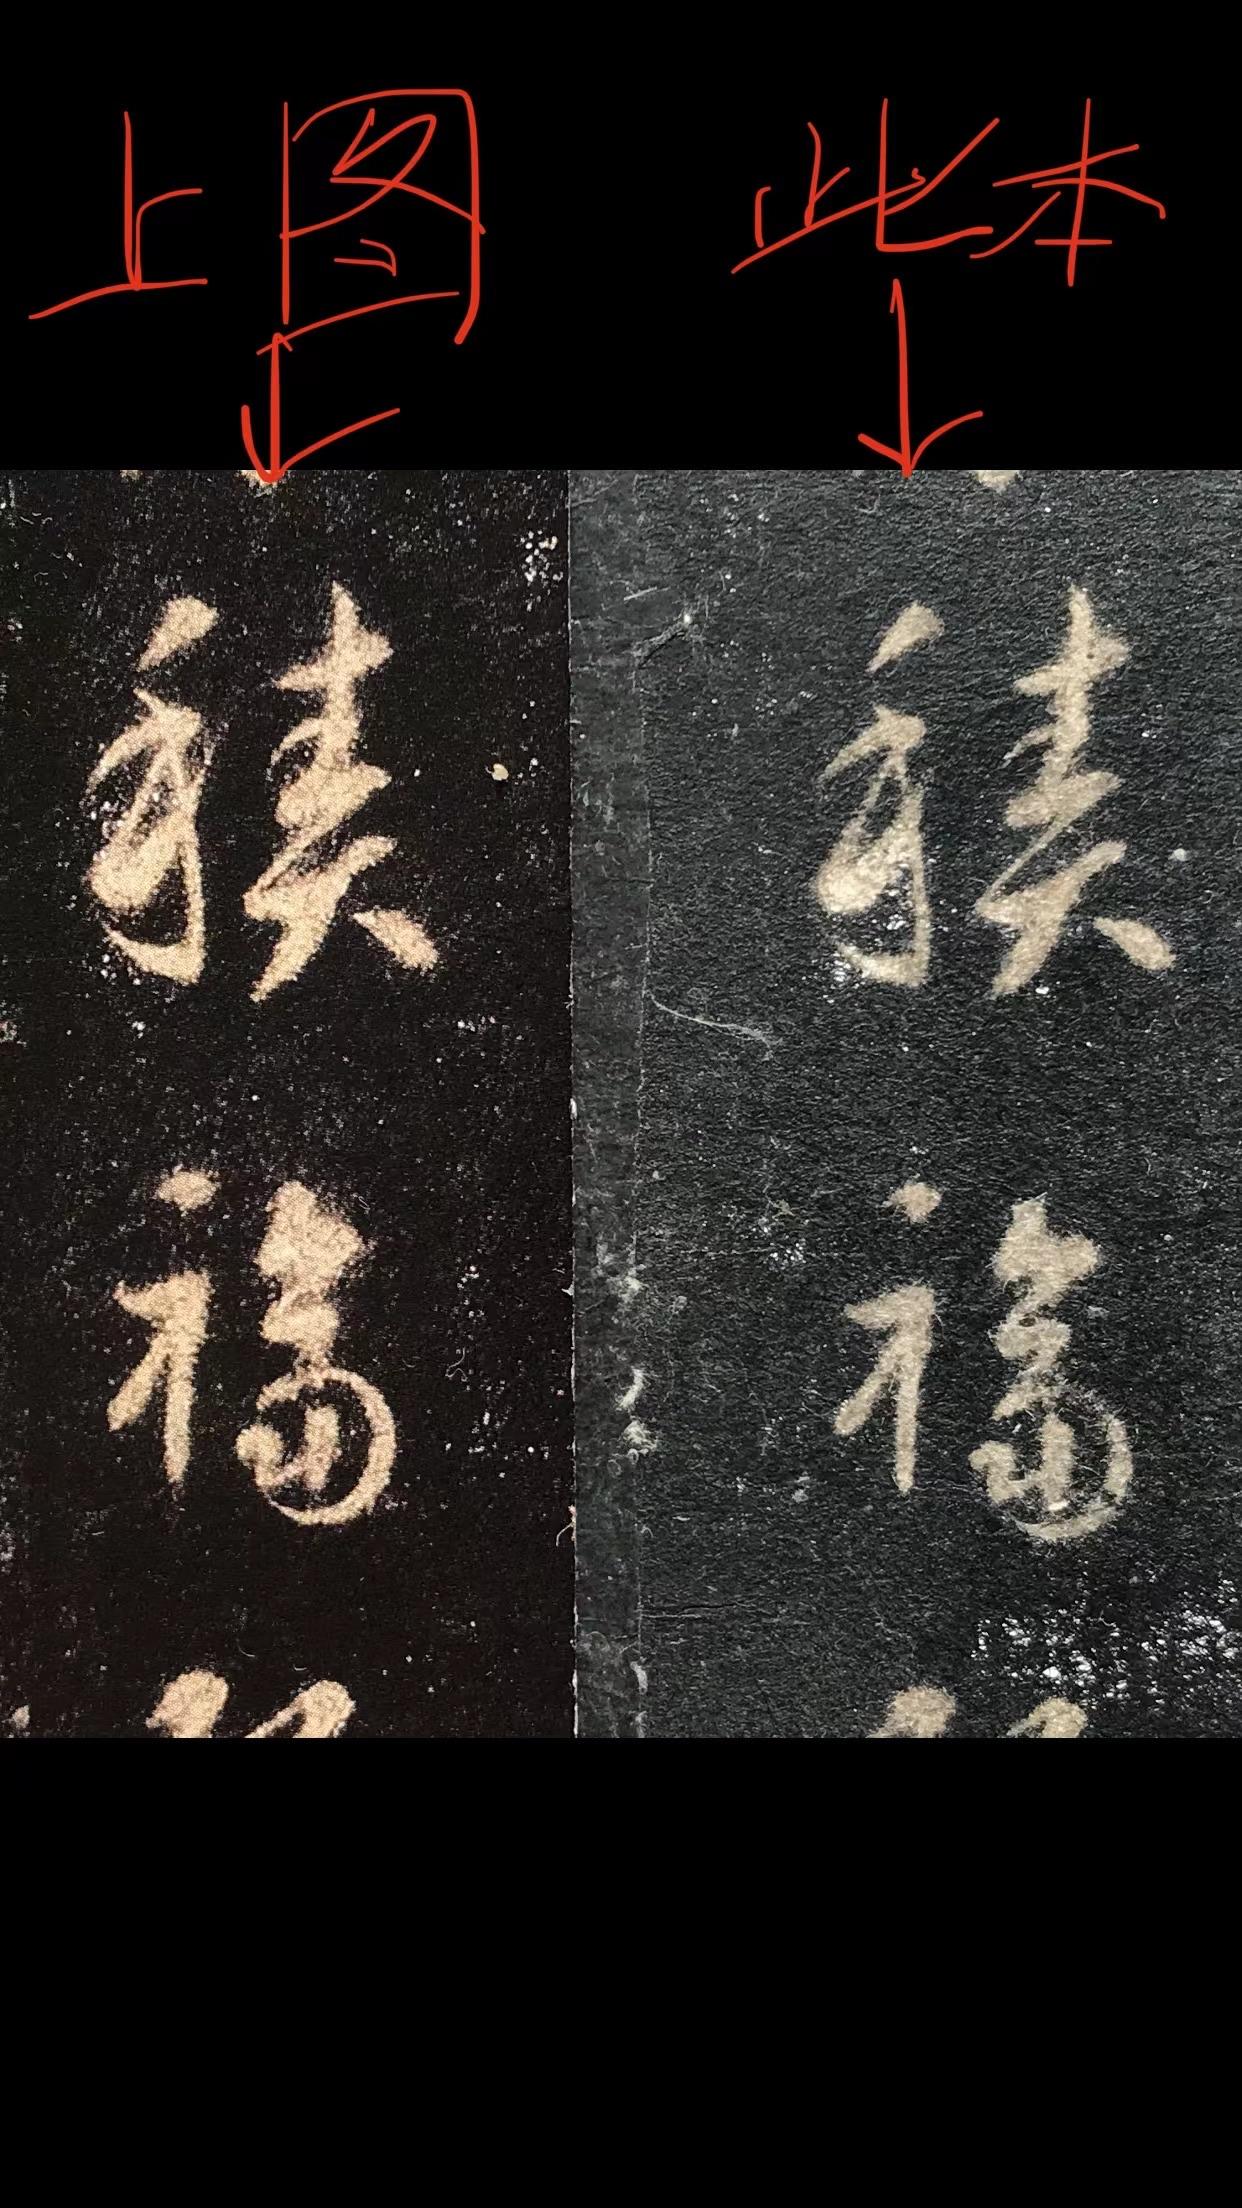 上图 此本
積 積
福 福